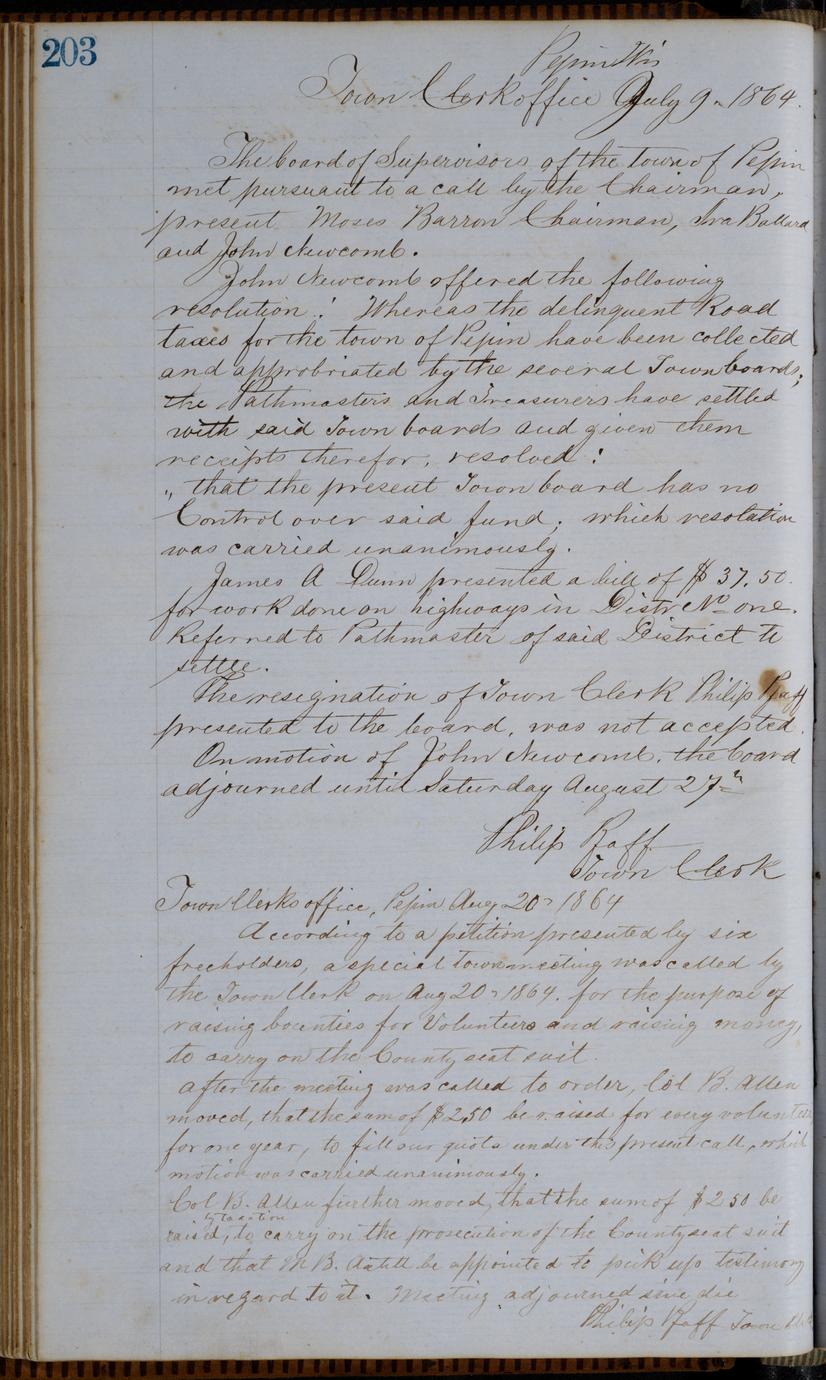 203
Pepin Wis
Town Clerk office July 9. 1864.
The board of Supervisors of the town of Pepin
met pursuant to a call by the Chairman,
present Moses Barron Chairman, Ira Ballard
and John Newcomb.
John Newcomb offered the following
resolution: Whereas the delinquent Road
taxes for the town of Pepin have been collected
and approbriated by the several Town boards;
the Pathmasters and Treasurers have settled
with said Town boards and given them
receipts therefor, resolved:
„ that the present Town board has no
Control over said fund; which resolution
was carried unanimously.
James A Dunn presented a bill of $37.50.
for work done on highways in Distr No one.
Referred to Pathmaster of said District to
settle.
The resignation of Town Clerk Philip Pfaff
presented to the board, was not accepted.
On motion of John Newcomb, the board
adjourned until Saturday August 27th
Philip Pfaff
Town Clerk
Town Clerks office, Pepin Aug 20th 1864
According to a petition presented by six
freeholders, a special town meeting was called by
the Town Clerk on Aug 20th 1864. for the purpose of
raising bounties for Volunteers and raising money,
to carry on the County seat suit.
After the meeting was called to order, Col B. Allen
moved, that the sum of $250 be raised for every volunteer
for one year, to fill our quota under this present call, which
motion was carried unanimously.
Col B. Allen further moved, that the sum of $250 be
by taxation
raised, to carry on the prosecution of the County seat suit
and that M B. be appointed to pick up testimony
in regard to it. Meeting adjourned sine die
Philip Pfaff Town Clerk